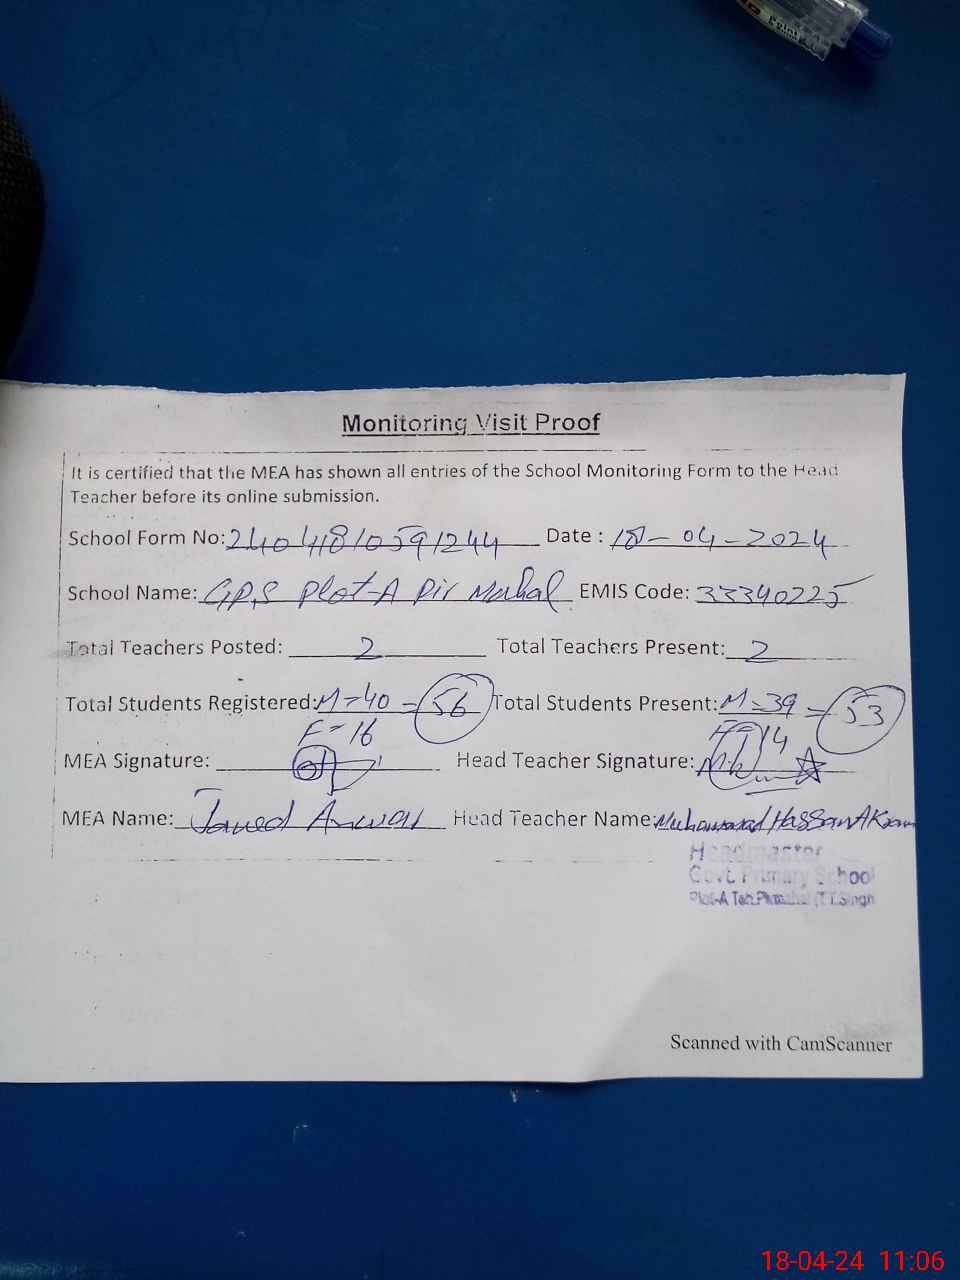 Point
Monitoring Visit Proof
It is certified that the MEA has shown all entries of the School Monitoring Form to the Head
Teacher before its online submission.
School Form No: 24041810591244 Date : 18-04-2024
School Name: G.P.S Plot-A Pir Mahal EMIS Code: 33340225
Total Teachers Posted: 2 Total Teachers Present: 2
Total Students Registered: M=40 = 56 Total Students Present: M=39 = 53
F=16 F=14
MEA Signature: Head Teacher Signature:
MEA Name: Javed Anwar Head Teacher Name: Muhammad Hassan Akram
Headmaster
Govt. Primary School
Plot-A Teh. Pirmahal (T.T.Singh
Scanned with CamScanner
18-04-24 11:06